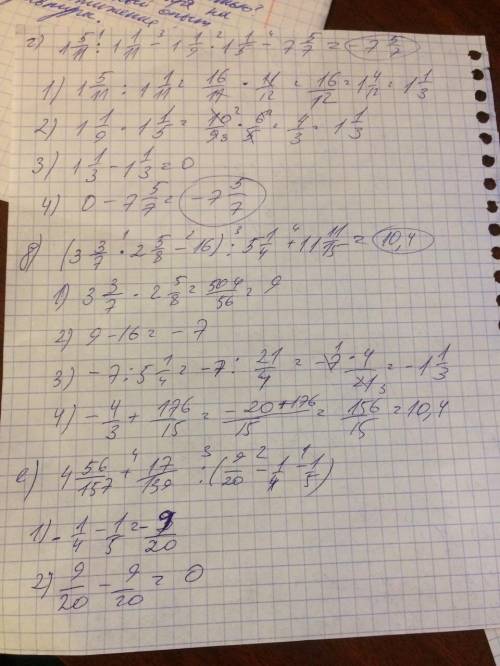 г) 1 5/11 : 1 1/11 - 1 1/9 · 1 1/5 - 7 5/7 = -7 5/7
1) 1 5/11 : 1 1/11 = 16/11 · 11/12 = 16/12 = 1 4/12 = 1 1/3
2) 1 1/9 · 1 1/5 = 10/9 · 6/5 = 4/3 = 1 1/3
3) 1 1/3 - 1 1/3 = 0
4) 0 - 7 5/7 = -7 5/7
б) (3 3/7 · 2 5/8 - 16) : 5 1/4 + 11 11/15 = 10,4
1) 3 3/7 · 2 5/8 = 504/56 = 9
2) 9 - 16 = -7
3) -7 : 5 1/4 = -7 : 21/4 = -7 · 4/21 = -1 1/3
4) -4/3 + 176/15 = -20+176/15 = 156/15 = 10,4
е) 4 56/157 + 17/139 : (9/20 - 1/4 - 1/5)
1) -1/4 - 1/5 = -9/20
2) 9/20 - 9/20 = 0